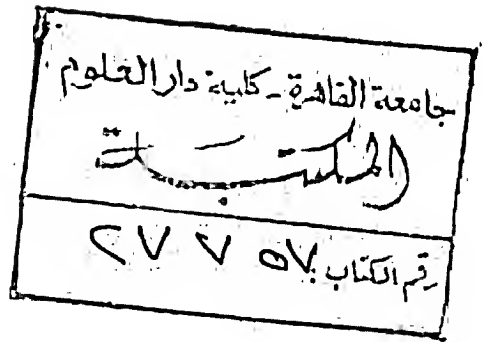 جامعة القاهرة - كلية دار العلوم
المكتبة
رقم الكتاب: ٥٧ ٧ ٢٧